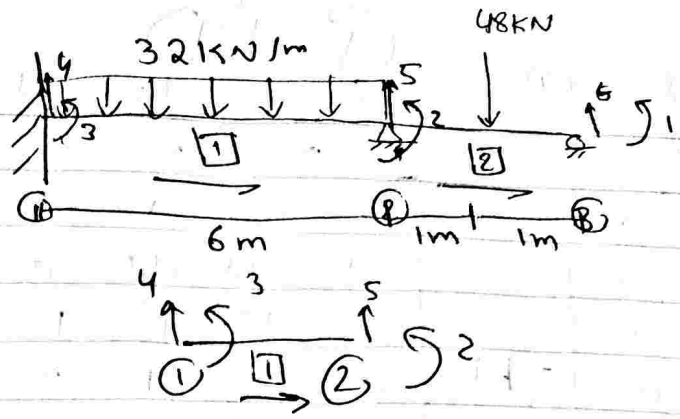 48KN
32KN/m
4
5
6
3
2
1
1
2
1
2
3
6m
1m
1m
4
3
5
1
1
2
2